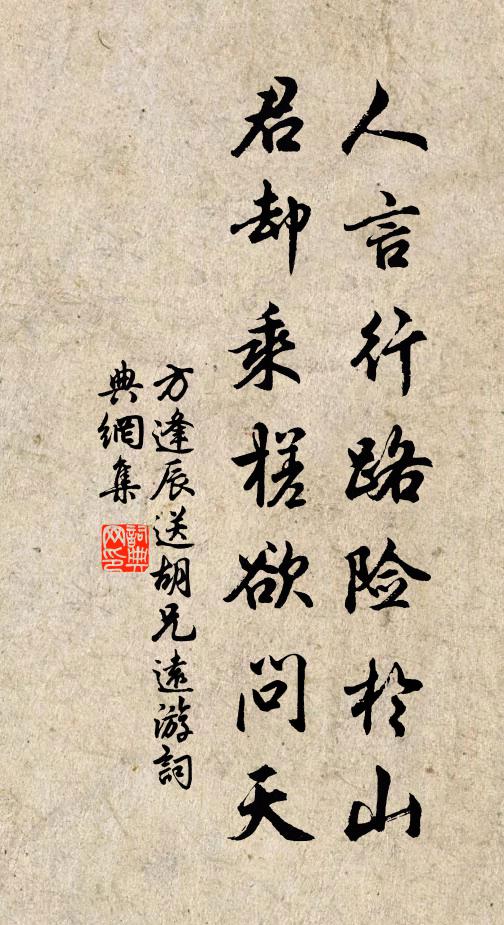 人言行路险於山
君却乘槎欲问天
方逢辰送胡兄遠游詞
典網集
詞典网印